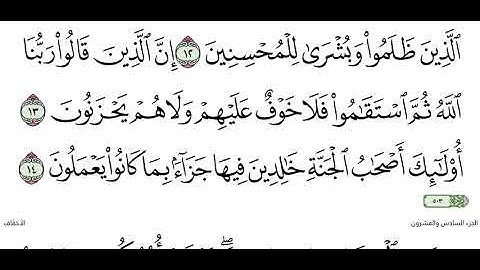 ٱلَّذِينَ ظَلَمُوا۟ وَبُشْرَىٰ لِلْمُحْسِنِينَ ١٢ إِنَّ ٱلَّذِينَ قَالُوا۟ رَبُّنَا
ٱللَّهُ ثُمَّ ٱسْتَقَـٰمُوا۟ فَلَا خَوْفٌ عَلَيْهِمْ وَلَا هُمْ يَحْزَنُونَ ١٣
أُو۟لَـٰٓئِكَ أَصْحَـٰبُ ٱلْجَنَّةِ خَـٰلِدِينَ فِيهَا جَزَآءًۢ بِمَا كَانُوا۟ يَعْمَلُونَ ١٤
٥٠٣
الجزء السادس والعشرون
الأحقاف